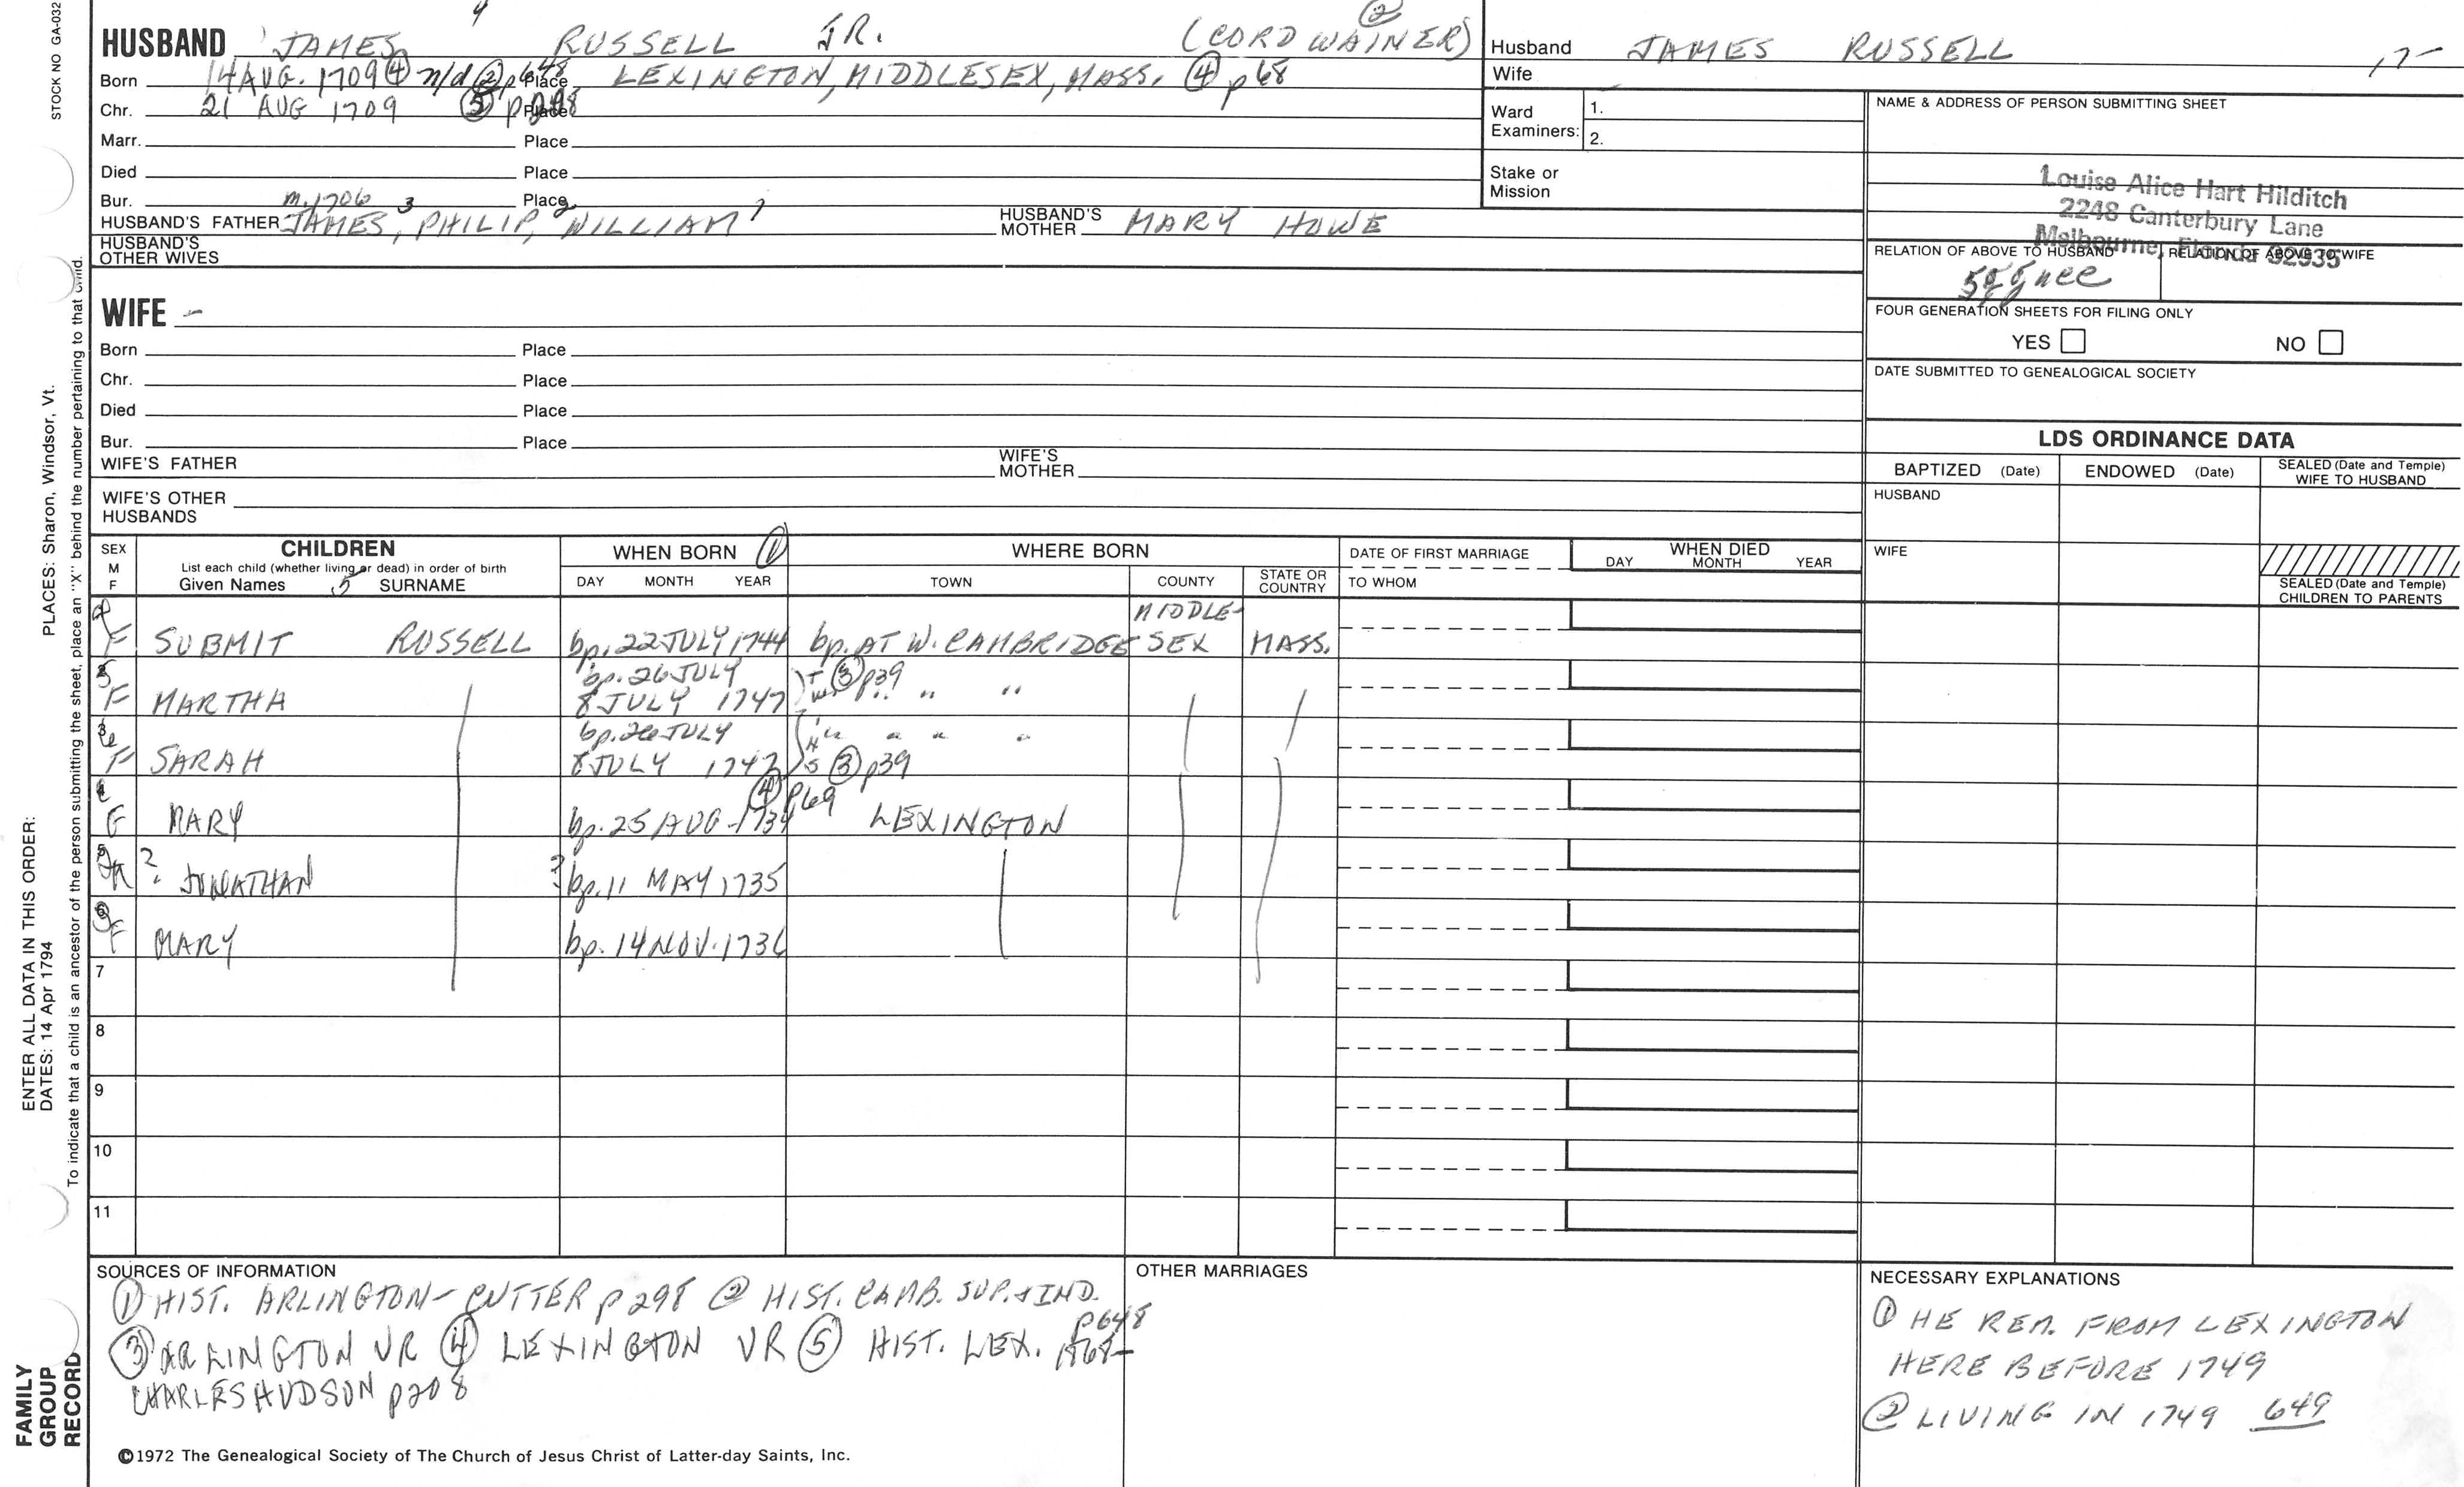 STOCK NO GA-032
PLACES: Sharon, Windsor, Vt.
ENTER ALL DATA IN THIS ORDER:
DATES: 14 Apr 1794
To indicate that a child is an ancestor of the person submitting the sheet, place an "X" behind the number pertaining to that child.
FAMILY
GROUP
RECORD
4 ②
HUSBAND JAMES RUSSELL JR. (CORDWAINER)
Born 14 AUG. 1709 ④ n/d ② p648 Place LEXINGTON, MIDDLESEX, MASS. ④ p68
Chr. 21 AUG 1709 ⑤ Place
Marr. Place
Died Place
Bur. Place
m. 1706 3 2 1
HUSBAND'S FATHER JAMES, PHILIP, WILLIAM HUSBAND'S MOTHER MARY HOWE
HUSBAND'S
OTHER WIVES
WIFE -
Born Place
Chr. Place
Died Place
Bur. Place
WIFE'S FATHER WIFE'S MOTHER
WIFE'S OTHER
HUSBANDS
Husband JAMES RUSSELL
Wife
Ward
Examiners: 1.
2.
Stake or
Mission
NAME & ADDRESS OF PERSON SUBMITTING SHEET
Louise Alice Hart Hilditch
2248 Canterbury Lane
Melbourne, Florida 32935
RELATION OF ABOVE TO HUSBAND RELATION OF ABOVE TO WIFE
FOUR GENERATION SHEETS FOR FILING ONLY
YES NO
DATE SUBMITTED TO GENEALOGICAL SOCIETY
LDS ORDINANCE DATA
BAPTIZED (Date) ENDOWED (Date) SEALED (Date and Temple)
WIFE TO HUSBAND
HUSBAND
WIFE
SEALED (Date and Temple)
CHILDREN TO PARENTS
SEX
M
F
CHILDREN
List each child (whether living or dead) in order of birth
Given Names 5 SURNAME
WHEN BORN ①
DAY MONTH YEAR
WHERE BORN
TOWN COUNTY STATE OR COUNTRY
DATE OF FIRST MARRIAGE
TO WHOM
WHEN DIED
DAY MONTH YEAR
F SUBMIT RUSSELL bp. 22 JULY 1744 bp. AT W. CAMBRIDGE MIDDLE-SEX MASS.
bp. 26 JULY ③ p39
F MARTHA 8 JULY 1747 " " "
bp. 26 JULY " " " "
F SARAH 8 JULY 1747 ③ p39
④ p69
MARY bp. 25 AUG 1734 LEXINGTON
? JONATHAN ? bp. 11 MAY 1735
F MARY bp. 14 NOV. 1736
7
8
9
10
11
SOURCES OF INFORMATION
① HIST. ARLINGTON - CUTTER p 298 ② HIST. CAMB. SUP. & IND.
p648
③ ARLINGTON VR ④ LEXINGTON VR ⑤ HIST. LEX. 1868-
CHARLES HUDSON p208
OTHER MARRIAGES
NECESSARY EXPLANATIONS
① HE REM. FROM LEXINGTON
HERE BEFORE 1749
② LIVING IN 1749 649
©1972 The Genealogical Society of The Church of Jesus Christ of Latter-day Saints, Inc.